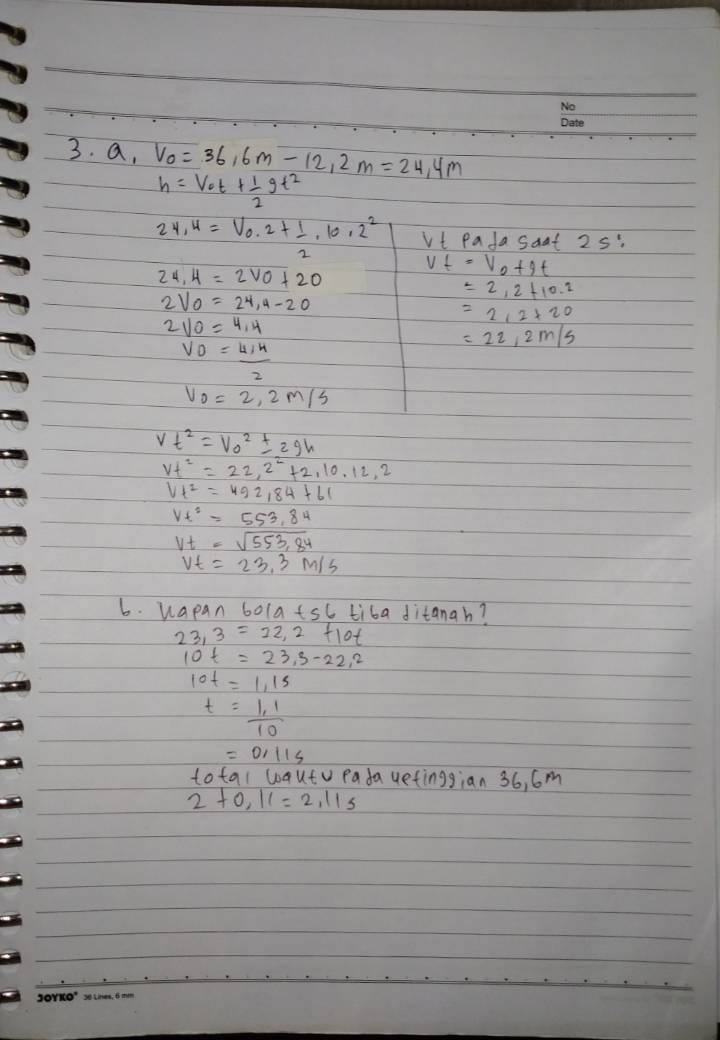 No
Date
3. a, Vo = 36,6m - 12,2 m = 24,4m
h = Vot + 1/2 gt²
24,4 = Vo.2 + 1/2 . 10 . 2²
24,4 = 2VO + 20
2VO = 24,4 - 20
2VO = 4,4
VO = 4,4/2
VO = 2,2 m/s
Vt pada saat 2s:
Vt = Vo + gt
= 2,2 + 10.2
= 2,2 + 20
= 22,2 m/s
Vt² = Vo² ± 2gh
Vt² = 22,2² + 2.10.12,2
Vt² = 492,84 + 61
Vt² = 553,84
Vt = √553,84
Vt = 23,3 M/S
b. Kapan bola tsb tiba ditanah?
23,3 = 22,2 + 10t
10t = 23,3 - 22,2
10t = 1,1s
t = 1,1/10
= 0,11s
total waktu pada ketinggian 36,6m
2 + 0,11 = 2,11s
JOYKO® 36 Lines, 6 mm